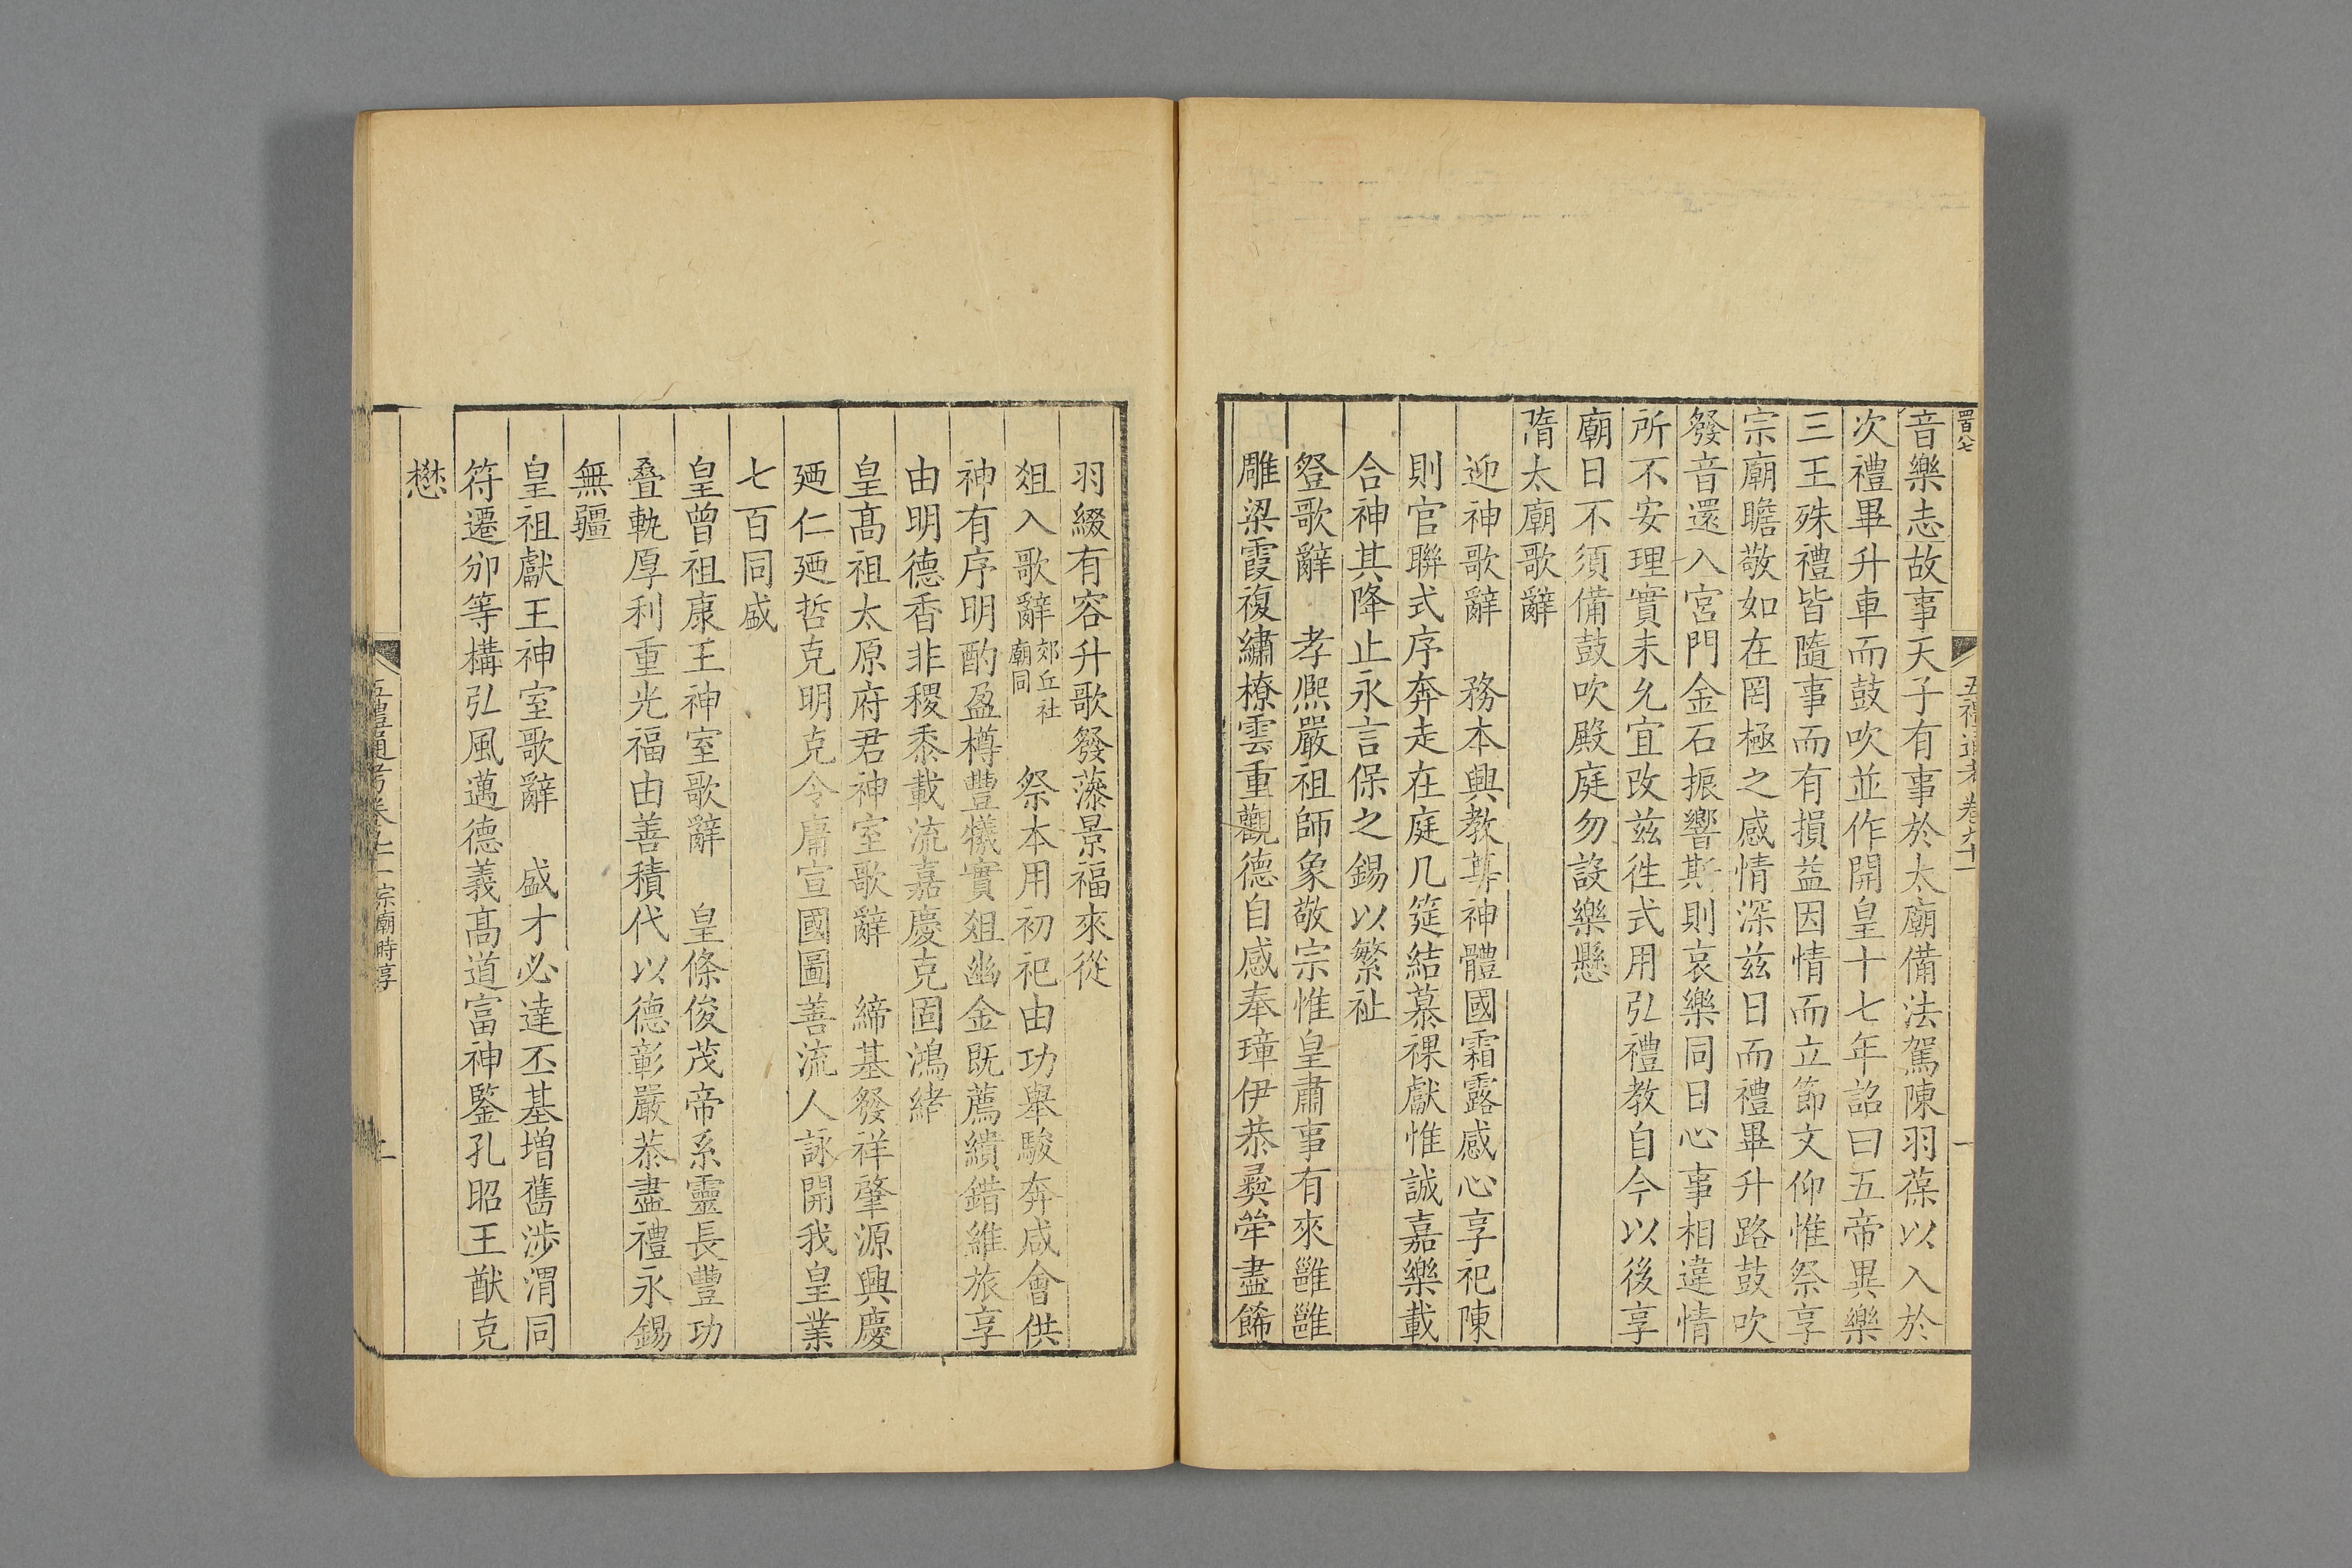 音樂志故事天子有事於太廟備法駕陳羽葆以入於
次禮畢升車而鼓吹並作開皇十七年詔曰五帝異樂
三王殊禮皆隨事而有損益因情而立節文仰惟祭享
宗廟瞻敬如在罔極之感情深茲日而禮畢升路鼓吹
發音還入宮門金石振響斯則哀樂同日心事相違情
所不安理實未允宜改茲徃式用弘禮教自今以後享
廟日不須備鼓吹殿庭勿設樂懸
隋太廟歌辭
迎神歌辭　務本興教尊神體國霜露感心享祀陳
則官聯式序奔走在庭几筵結慕祼獻惟誠嘉樂載
合神其降止永言保之錫以繁祉
登歌辭　孝熙嚴祖師象敬宗惟皇肅事有來雝雝
雕梁霞複繡橑雲重觀德自感奉璋伊恭彞斝盡飾
羽綴有容升歌發藻景福來從
俎入歌辭郊丘社廟同　祭本用初祀由功舉駿奔咸會供
神有序明酌盈樽豐犧實俎幽金既薦繢錯維旅享
由明德香非稷黍載流嘉慶克固鴻緒
皇高祖太原府君神室歌辭　締基發祥肇源興慶
廼仁廼哲克明克令庸宣國圖善流人詠開我皇業
七百同盛
皇曾祖康王神室歌辭　皇條俊茂帝系靈長豐功
叠軌厚利重光福由善積代以德彰嚴恭盡禮永錫
無疆
皇祖獻王神室歌辭　盛才必達丕基增舊涉渭同
符遷邠等構弘風邁德義高道富神鑒孔昭王猷克
懋
五禮通考卷九十一　宗廟時享